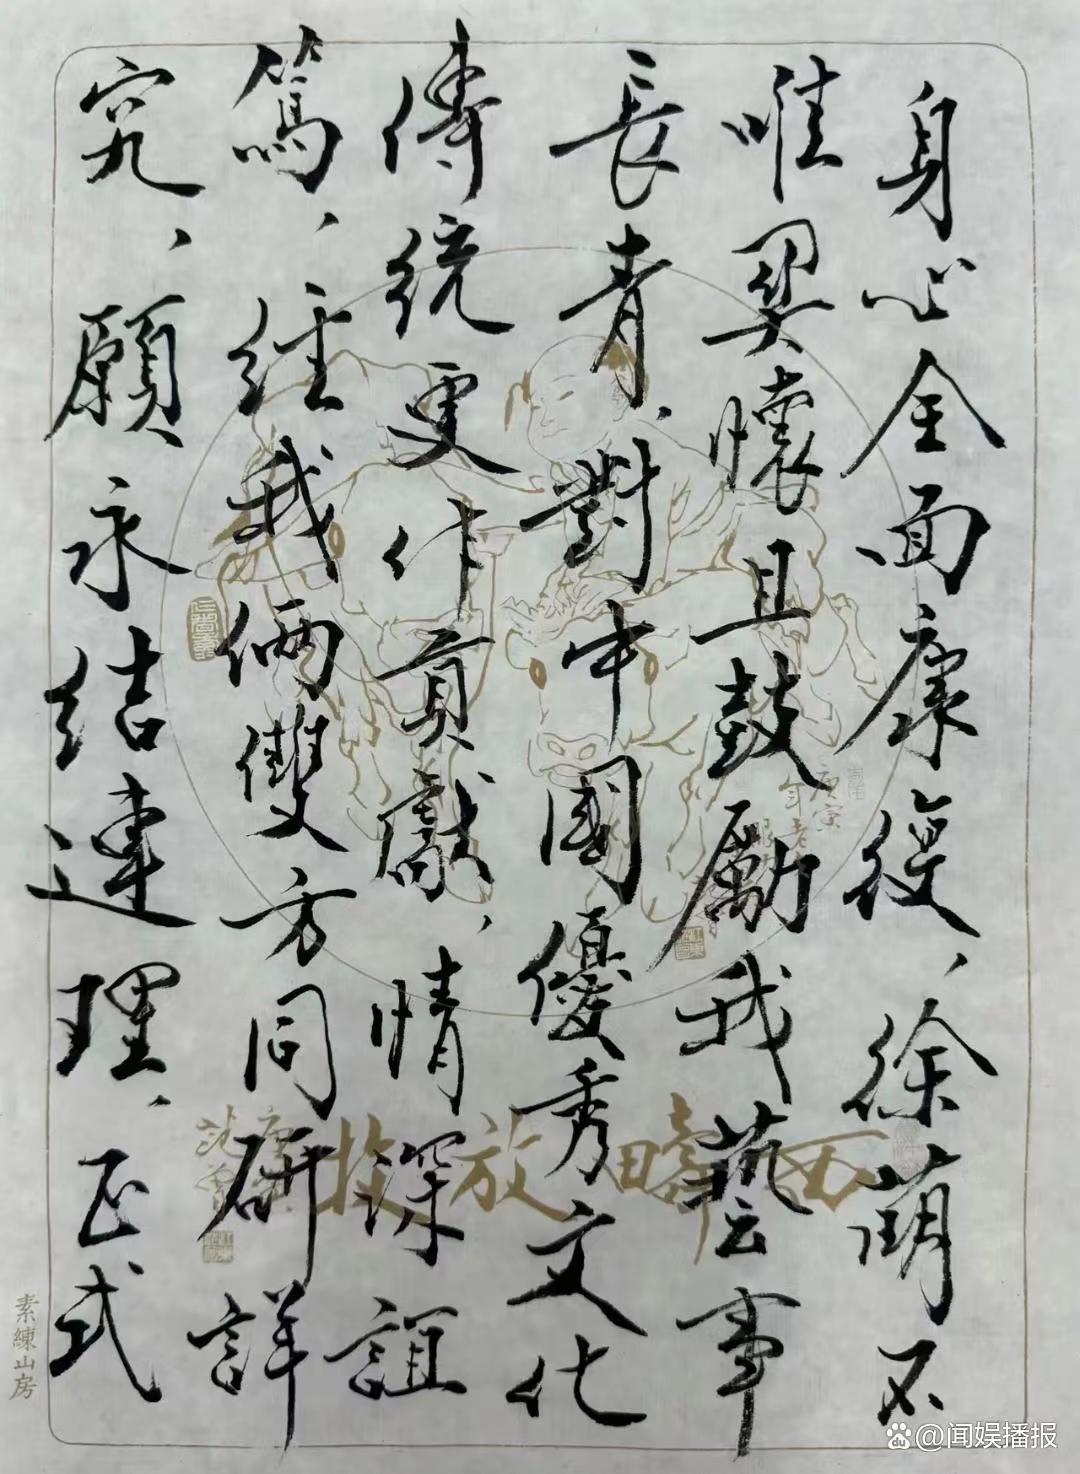 身心全面康復、徐萌不
唯契懷且鼓勵我藝事
長青、對中國優秀文化
傳統更作貢獻、情深誼
篤、經我倆雙方同研詳
究、願永結連理、正式
西疇放牧
庚寅
范曾
素練山房
@闻娱播报